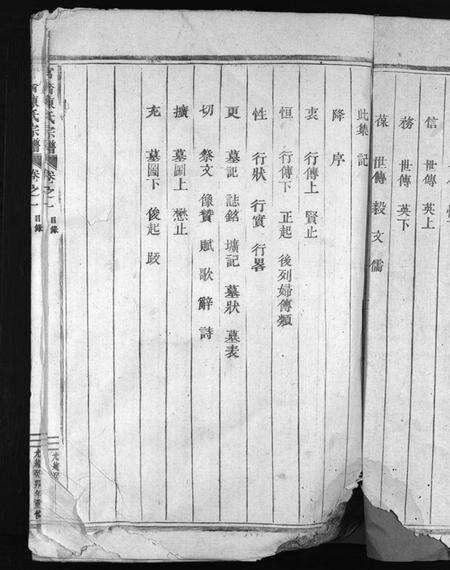 信 世傳 英上
務 世傳 英下
葆 世傳 毅 文 儒
此集 記
降 序
衷 行傳上 賢止
恒 行傳下 正起 後列婦傳類
性 行狀 行實 行畧
更 墓記 誌銘 壙記 墓狀 墓表
切 祭文 像贊 賦 歌 辭 詩
擴 墓圖上 懋止
充 墓圖下 俊起 跋
陳氏宗譜 卷之一 目錄
陳氏宗譜 卷之一 目錄